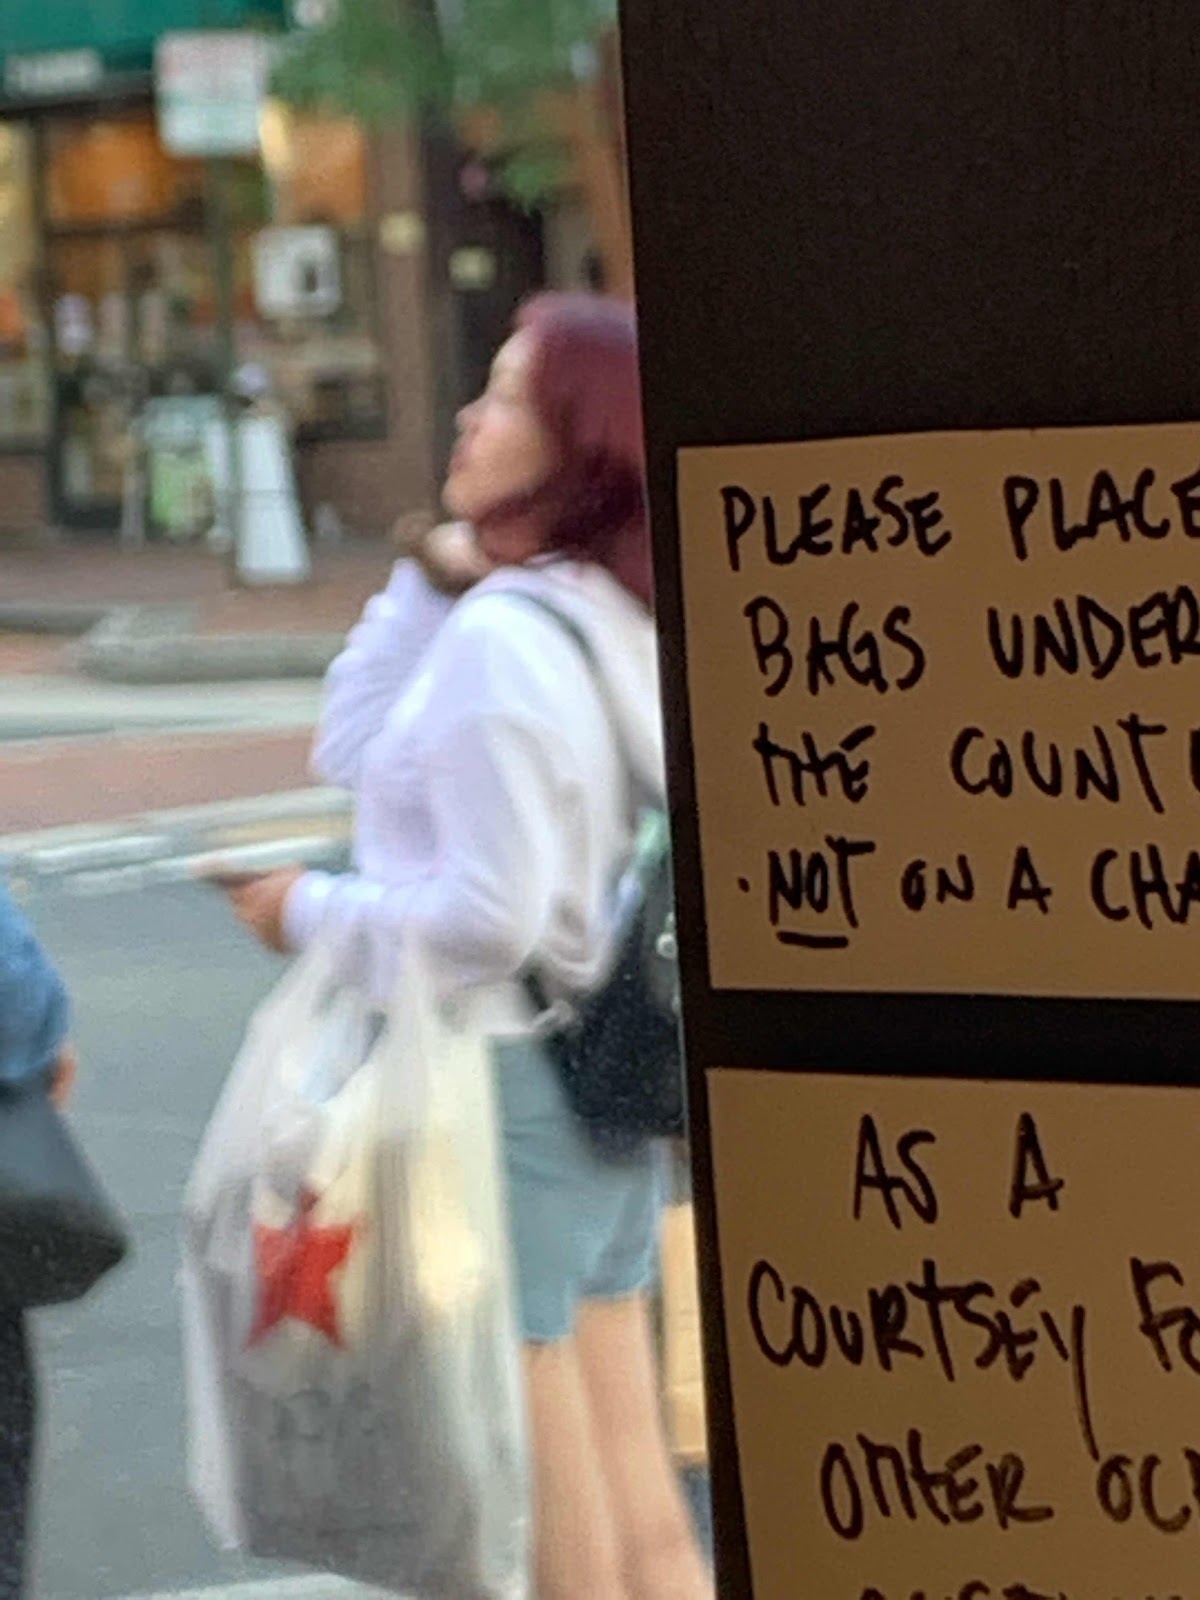 PLEASE PLACE
BAGS UNDER
THE COUNTE
· NOT ON A CHA
AS A
COURTSEY FO
OTHER OC